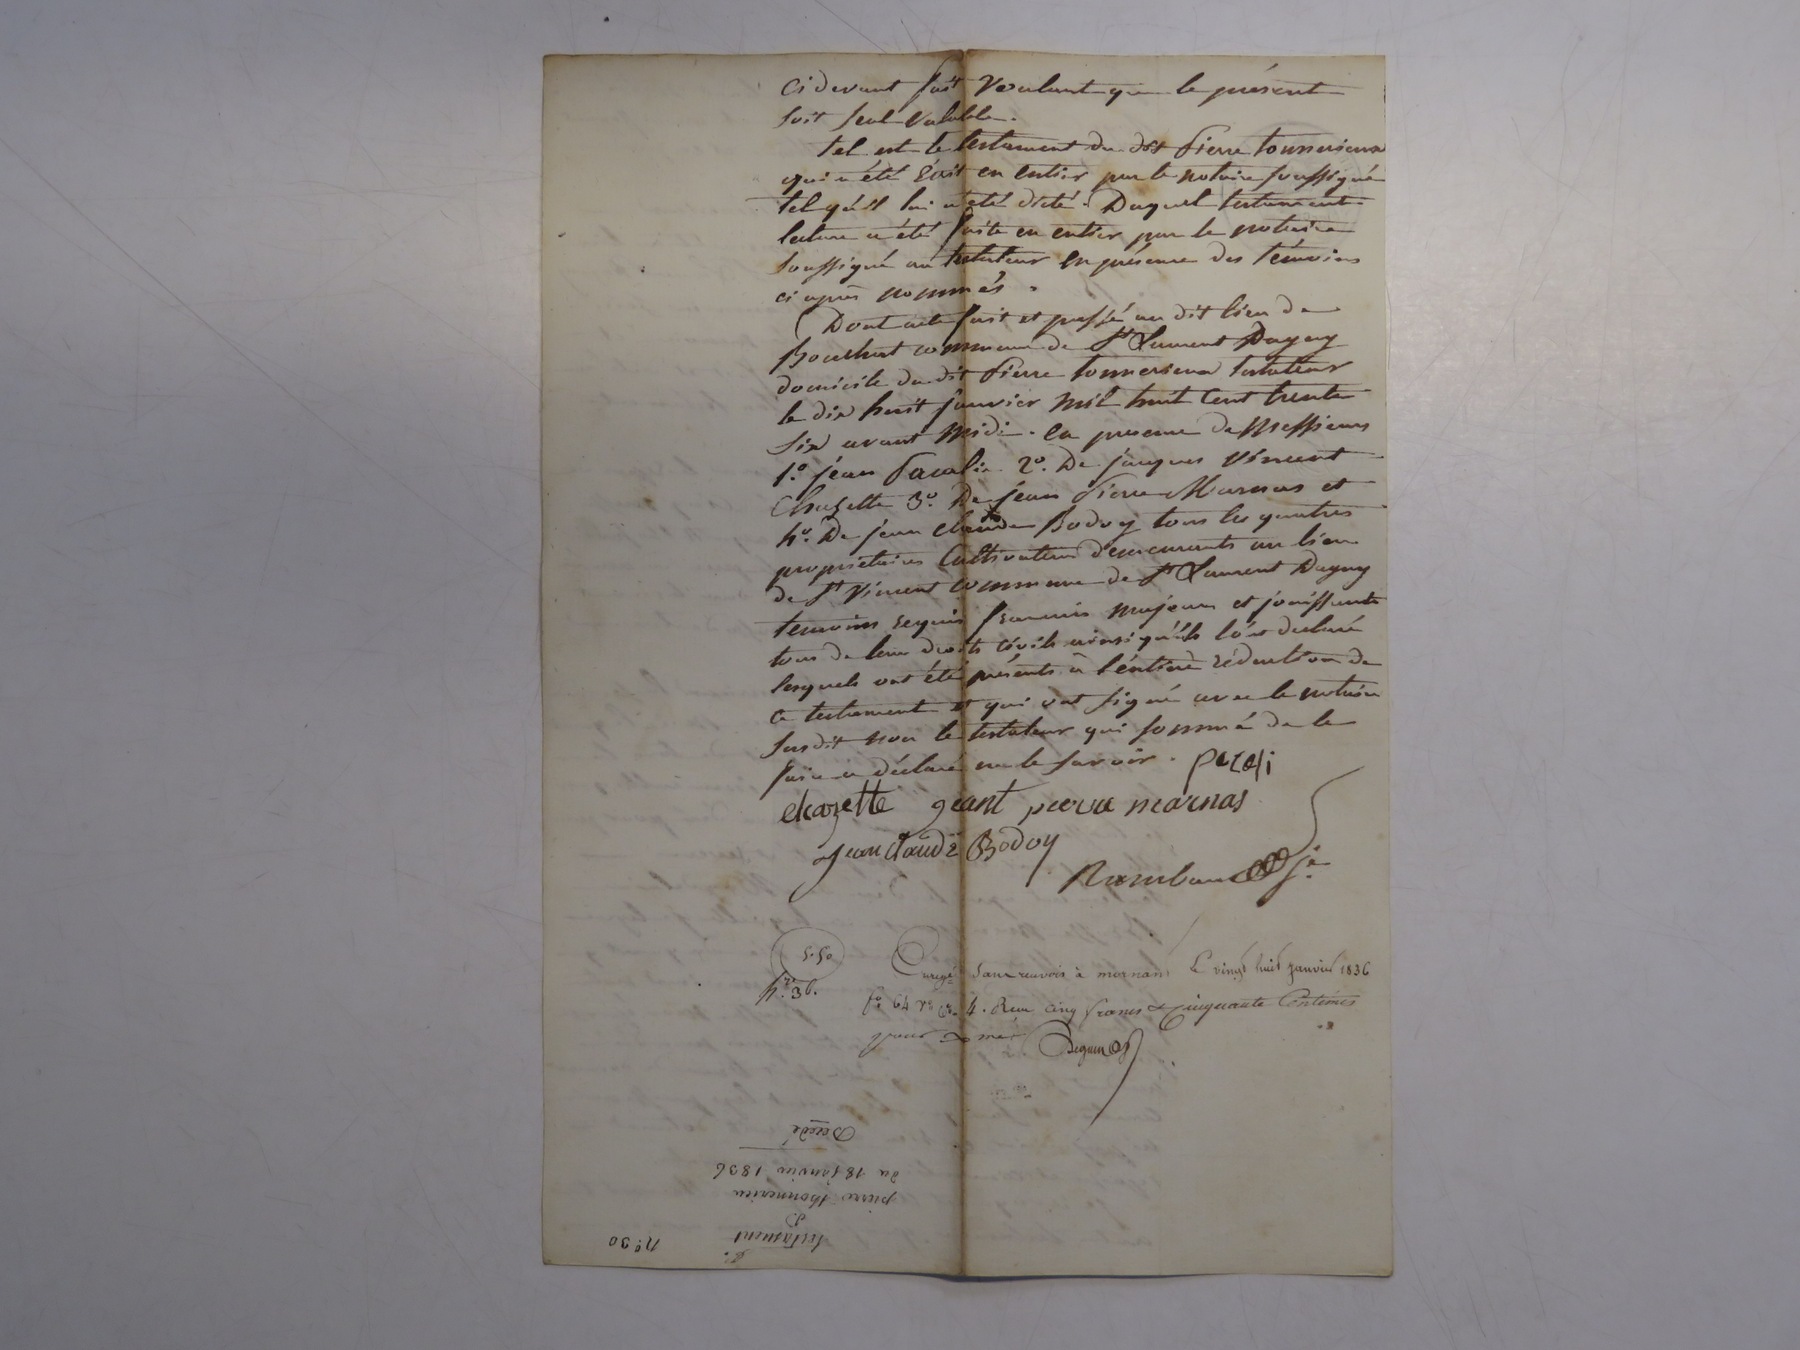 ci devant fait Voulant que le présent
soit seul Valable.
tel est le testament du dit Pierre tonnerieux
qui a été écrit en entier par le notaire soussigné
tel qu'il lui a été dicté. Duquel testament
lecture a été faite en entier par le notaire
soussigné au testateur en présence des témoins
ci après nommés.
Dont acte fait et passé au dit lieu de
commune de St Laurent Dagny
domicile du dit Pierre tonnerieux testateur
le dix huit janvier mil huit Cent trente
six avant midi. en presence de Messieurs
1° jean 2°. De jacques Vincent
Chazette 3°. De jean Pierre Marnas et
4°. De jean claude Bodoy tous les quatres
propriétaires Cultivateurs demeurants au lieu
de St Vincent commune de St Laurent Dagny
temoins requis francais majeurs et jouissants
tous de leur droits civils ainsi qu'ils l'ont declaré
lesquels ont été présents à l'éntiere rédaction de
ce testament et qui ont signé avec le notaire
susdit non le testateur qui sommé de le
faire a déclaré ne le savoir.
chazette geant pierre marnas
jean claude Bodoy
5.50
n° 36.
sans renvois à mornant Le vingt huit janvier 1836
f° 64 4. Recu cinq francs & Cinquante Centimes
pour
n° 30
testament
pierre thonnerieu
du 18 janvier 1836
Décédé